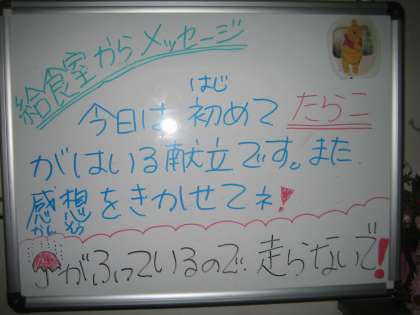 給食室からメッセージ
はじ
今日は初めてたらこ
がはいる献立です。また
感想をきかせてネ!
かんそう
がふっているので、走らないで!